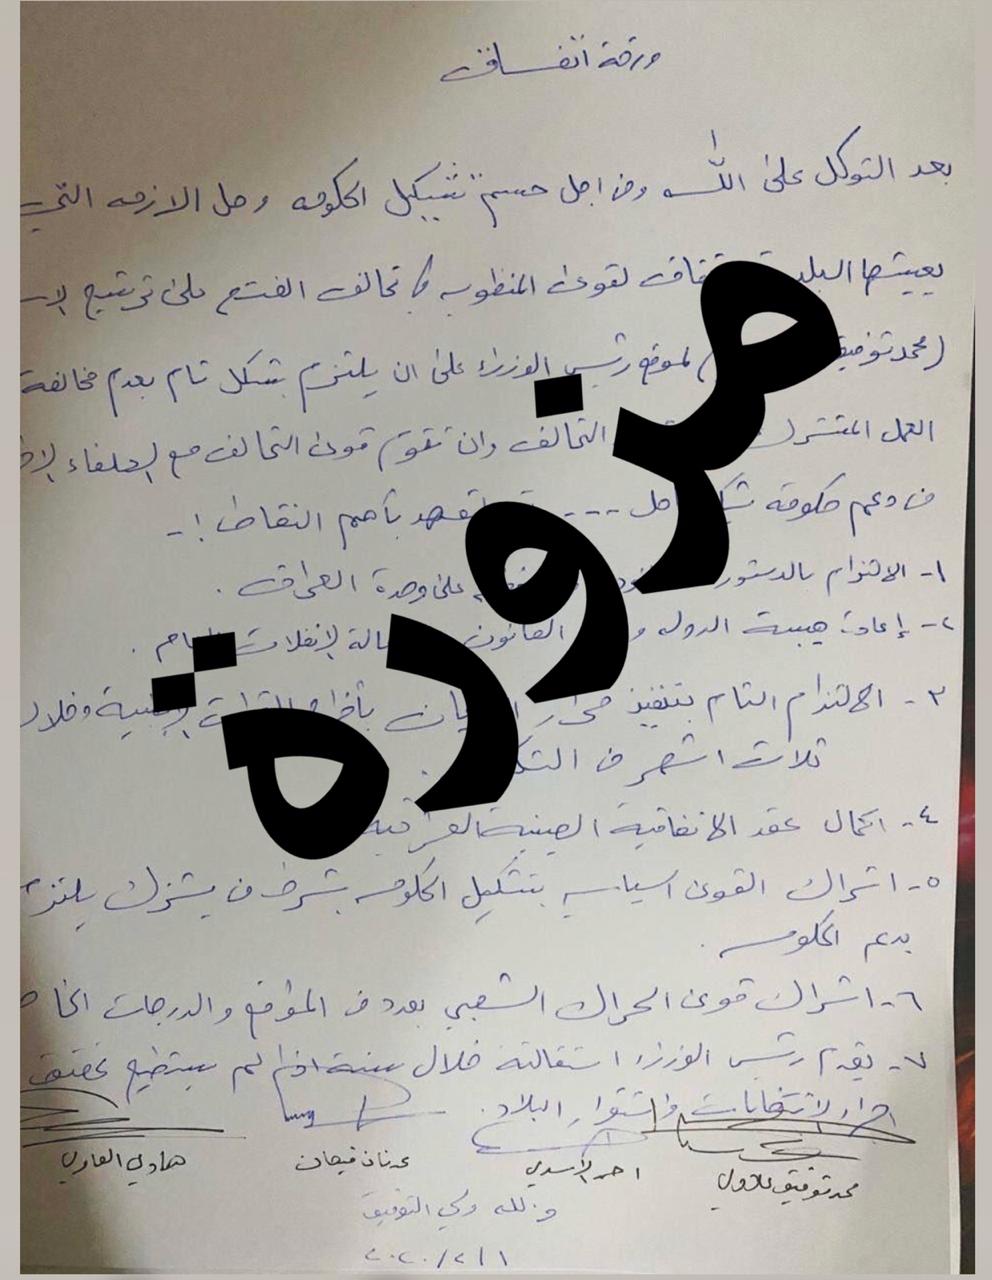 ورقة اتفاق
بعد التوكل على الله ومن اجل حسم تشكيل الحكومه وحل الازمه التي
يعيشها البلد لقوى المنظويه تحالف الفتح على ترشيح
(محمد توفيق ) لموقع رئيس الوزراء على ان يلتزم بشكل تام بعدم مخالفة
العمل المشترك التحالف وان تقوم قوى التحالف مع الحلفاء
من دعم حكومة --- بأهم النقاط :-
١- الالتزام بالدستور على وحدة العراق .
٢- إعادة هيبة الدوله و القانون .
٣- الالتزام التام بتنفيذ وخلال
ثلاث اشهر من .
٤- اكمال عقد الاتفاقية الصينية العراقية
٥- اشراك القوى اسياسيه بتشكيل الحكومه بشرط من يشترك يلتزم
بدعم الحكومه .
٦- اشراك قوى الحراك الشعبي بعدد من المواقع والدرجات
٧- يقدم رئيس الوزراء استقالته خلال سنة اذا لم يستطيع تحقيق
اجراء الانتخابات واستقرار البلاد .
محمد توفيق علاوي احمد الاسدي عدنان فيحان هادي العامري
والله ولي التوفيق
٢٠٢٠/٢/١
مزورة